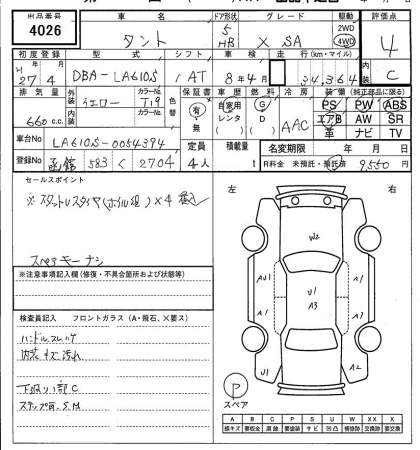 出品番号 車名 ドア形状 グレード 駆動 評価点
4026 タント 5 HB X SA 2WD 4WD 4
初度登録 型式 シフト 車検 走行(km・マイル) 内装
27 4 DBA-LA610S AT 8年4月 34,364 C
排気量 外装 イエロー カラーNo. T19 色替 保証書 車歴 燃料 冷房 装備(純正部品に限る)
660 c.c. 内装 カラーNo. 有・無 自家用 レンタ ( ) G D ( ) AAC PS PW ABS
エアB AW SR
革 ナビ TV
車台No LA610S-0054394 定員 積載量 名変期限 年 月 日
登録No 函館 583 く 2704 4人 t R料金 未預託・預託済 9,550円
セールスポイント
※スタッドレスタイヤ(ホイル組)×4
スペアキーナシ
※注意事項記入欄(修復・不具合箇所および状態等)
検査員記入 フロントガラス(A・飛石、X要ス)
ハンドルスレ
内装キズ汚れ
下廻り1部C
ステップ両S.M
左 右
W2
AU1 A1
U1
A3
A1 AU1
U1 A2
P
スペア
A B C P S U W X XX X
線キズ 要板金 腐蝕 要塗装 サビ 凹凸 補修跡 交換跡 要交換